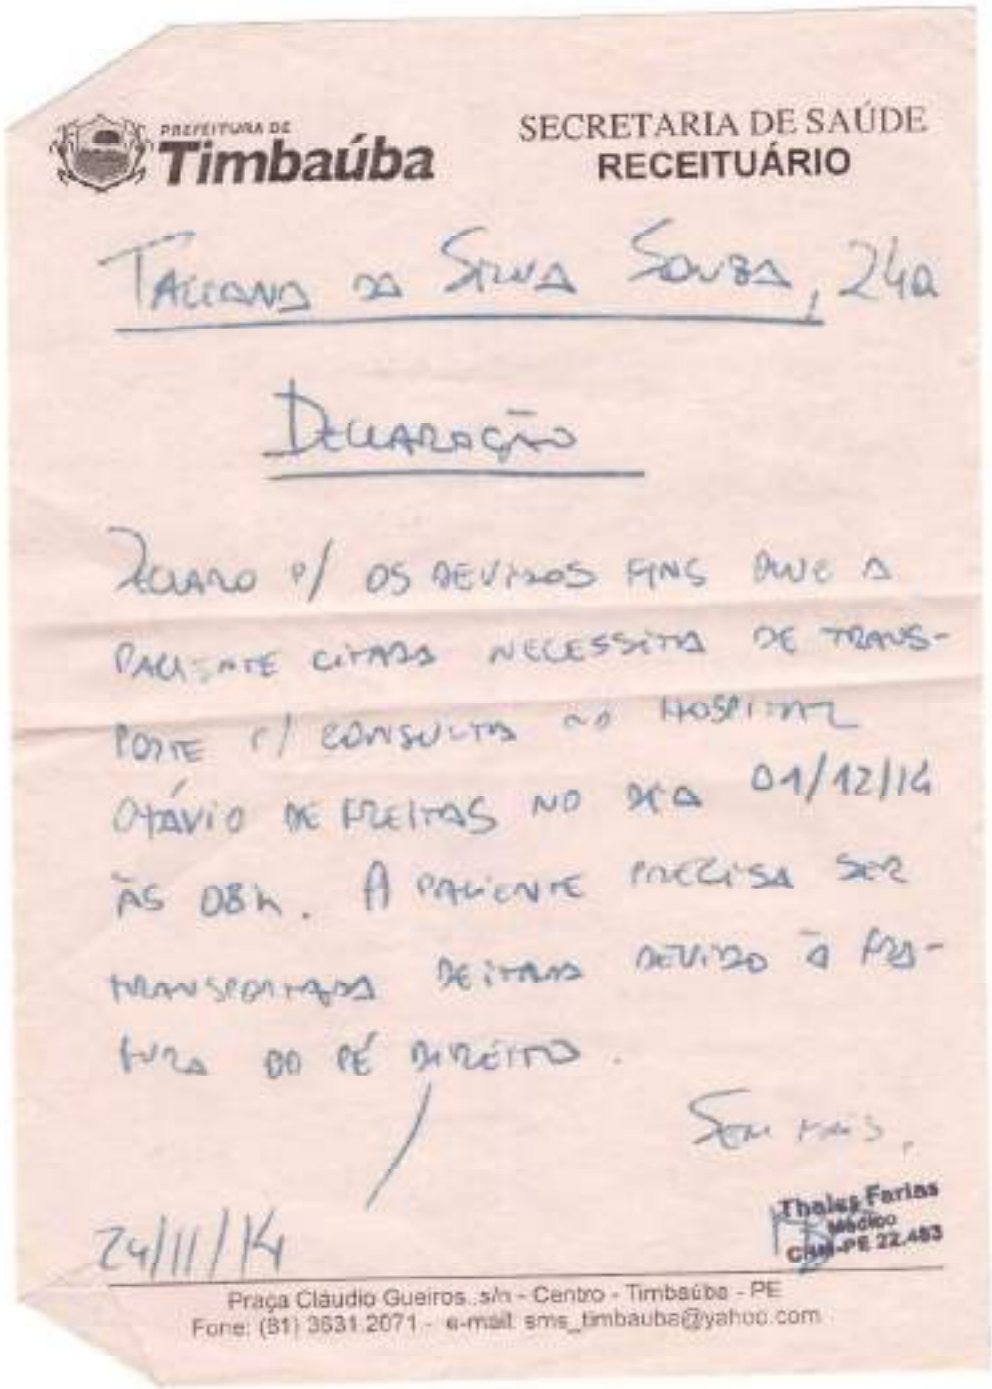 PREFEITURA DE
Timbaúba
SECRETARIA DE SAÚDE
RECEITUÁRIO
DA SILVA SOUZA, 24a
DECLARAÇÃO
DECLARO P/ OS DEVIDOS FINS QUE A
PACIENTE CITADA NECESSITA DE TRANS-
PORTE P/ CONSULTA NO HOSPITAL
OTÁVIO DE FREITAS NO DIA 01/12/14
ÀS 08h. A PACIENTE PRECISA SER
TRANSPORTADA DEITADA DEVIDO À FRA-
TURA DO PÉ DIREITO.
SEM MAIS,
Thales Farias
Médico
CRM-PE 22.483
24/11/14
Praça Cláudio Gueiros, s/n - Centro - Timbaúba - PE
Fone: (81) 3631.2071 - e-mail: sms_timbauba@yahoo.com